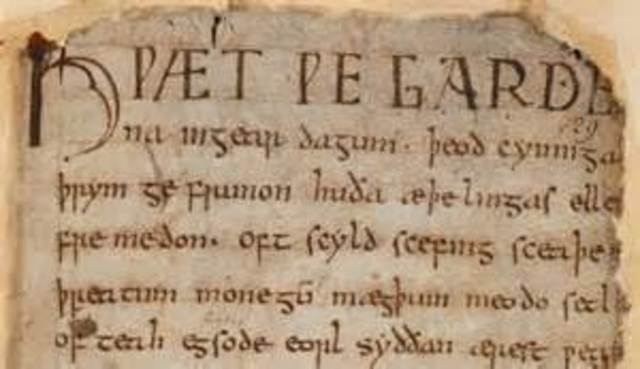 HǷÆT ǷE GARDE
na ingear dagum · þeod cyninga
þrym ge frunon huða æþelingas elle
fre medon. oft scyld scefing sceaþe
þreatum monegū mægþum meodo setl
of teah egsode eorl syððan ærest ƿear